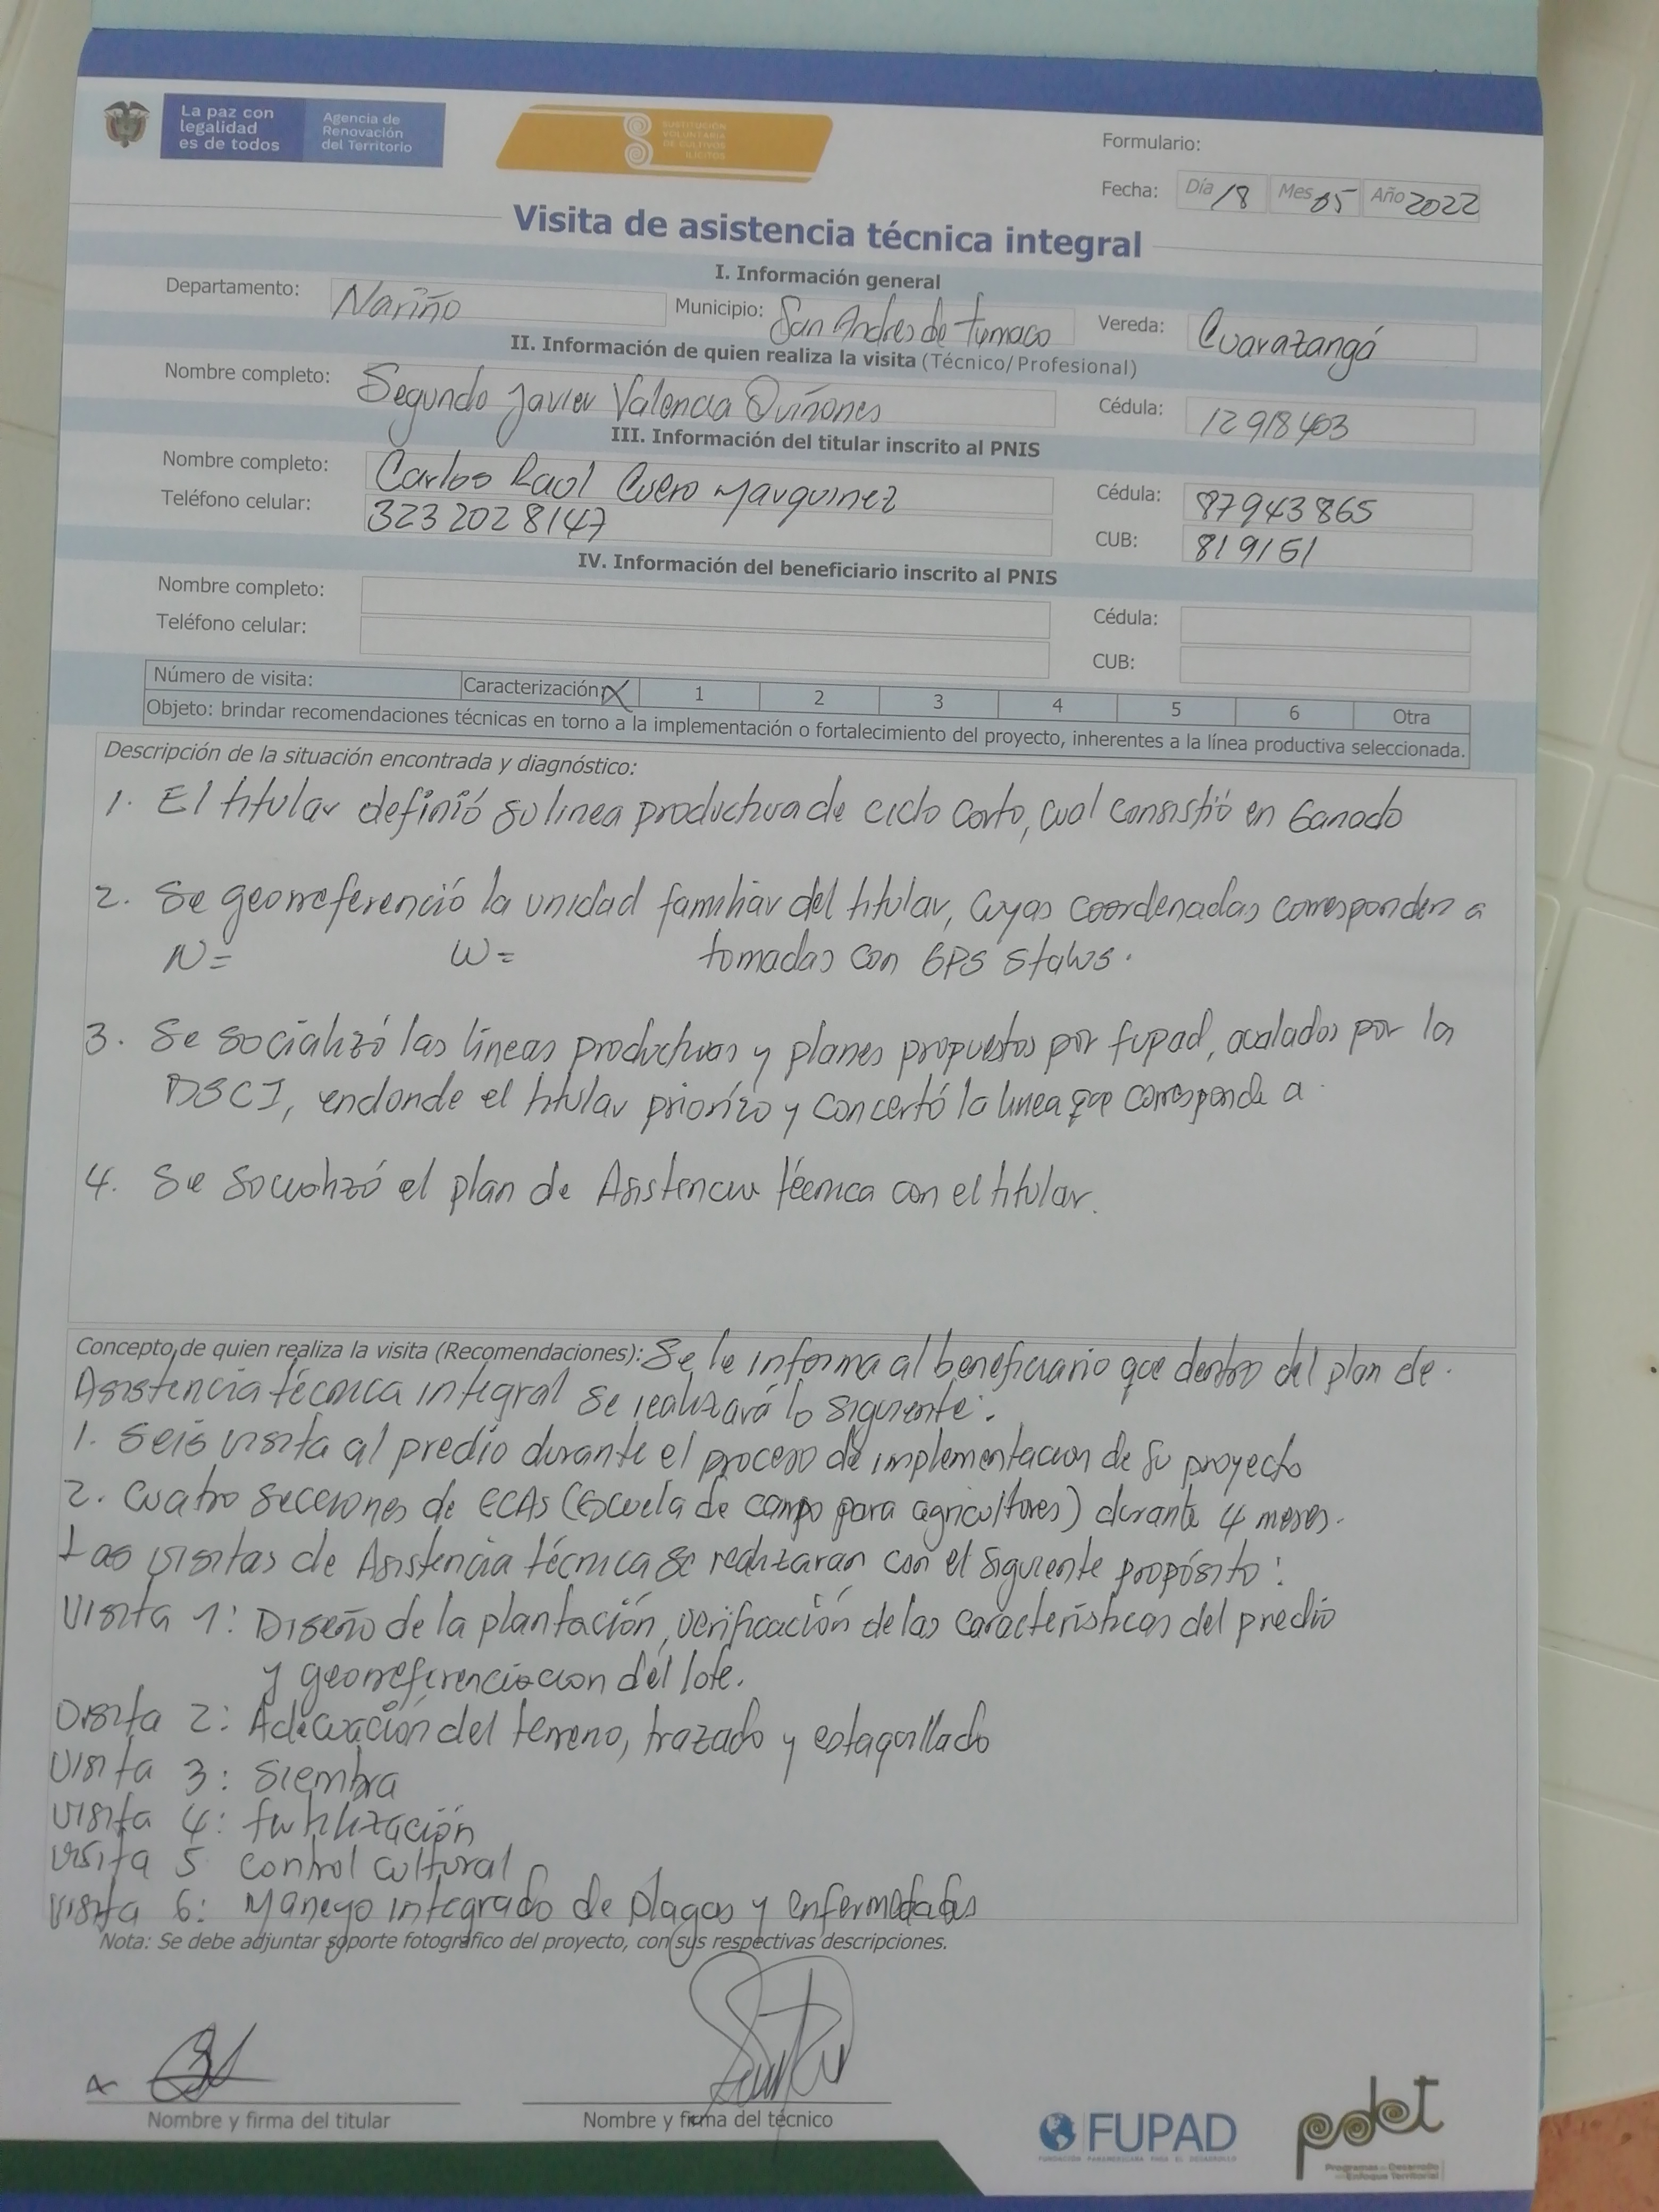 La paz con
legalidad
es de todos
Agencia de
Renovación
del Territorio
SUSTITUCIÓN
VOLUNTARIA
DE CULTIVOS
ILÍCITOS
Formulario:
Fecha: Día 18 Mes 05 Año 2022
Visita de asistencia técnica integral
I. Información general
Departamento: Nariño Municipio: San Andres de Tumaco Vereda: Cuarazangá
II. Información de quien realiza la visita (Técnico/Profesional)
Nombre completo: Segundo Javier Valencia Quiñones Cédula: 12918403
III. Información del titular inscrito al PNIS
Nombre completo: Carlos Raul Cuero Marquinez Cédula: 87943865
Teléfono celular: 3232028147 CUB: 819151
IV. Información del beneficiario inscrito al PNIS
Nombre completo: Cédula:
Teléfono celular: CUB:
Número de visita: Caracterización: X 1 2 3 4 5 6 Otra
Objeto: brindar recomendaciones técnicas en torno a la implementación o fortalecimiento del proyecto, inherentes a la línea productiva seleccionada.
Descripción de la situación encontrada y diagnóstico:
1. El titular definió su linea productiva de ciclo corto, cual consistió en Ganado
2. Se georreferenció la unidad familiar del titular, cuyas coordenadas corresponden a
N= W= tomadas con GPS Status.
3. Se socializó las líneas productivas y planes propuestos por fupad, avalados por la
DSCI, endonde el titular priorizo y concertó la linea que corresponde a
4. Se socializó el plan de Asistencia técnica con el titular.
Concepto de quien realiza la visita (Recomendaciones): Se le informa al beneficiario que dentro del plan de
Asistencia técnica integral se realizará lo siguiente:
1. Seis visita al predio durante el proceso de implementacion de su proyecto
2. Cuatro secciones de ECAs (Escuela de campo para agricultores) durante 4 meses.
Las visitas de Asistencia técnica se realizaran con el siguiente propósito:
Visita 1: Diseño de la plantación, verificación de las características del predio
y georreferenciacion del lote.
Visita 2: Adecuación del terreno, trazado y estaquillado
Visita 3: Siembra
Visita 4: fertilización
Visita 5 control cultural
Visita 6: Manejo integrado de plagas y enfermedades
Nota: Se debe adjuntar soporte fotográfico del proyecto, con sus respectivas descripciones.
Nombre y firma del titular
Nombre y firma del técnico
FUPAD
FUNDACIÓN PANAMERICANA PARA EL DESARROLLO
pdet
Programas de Desarrollo
con Enfoque Territorial